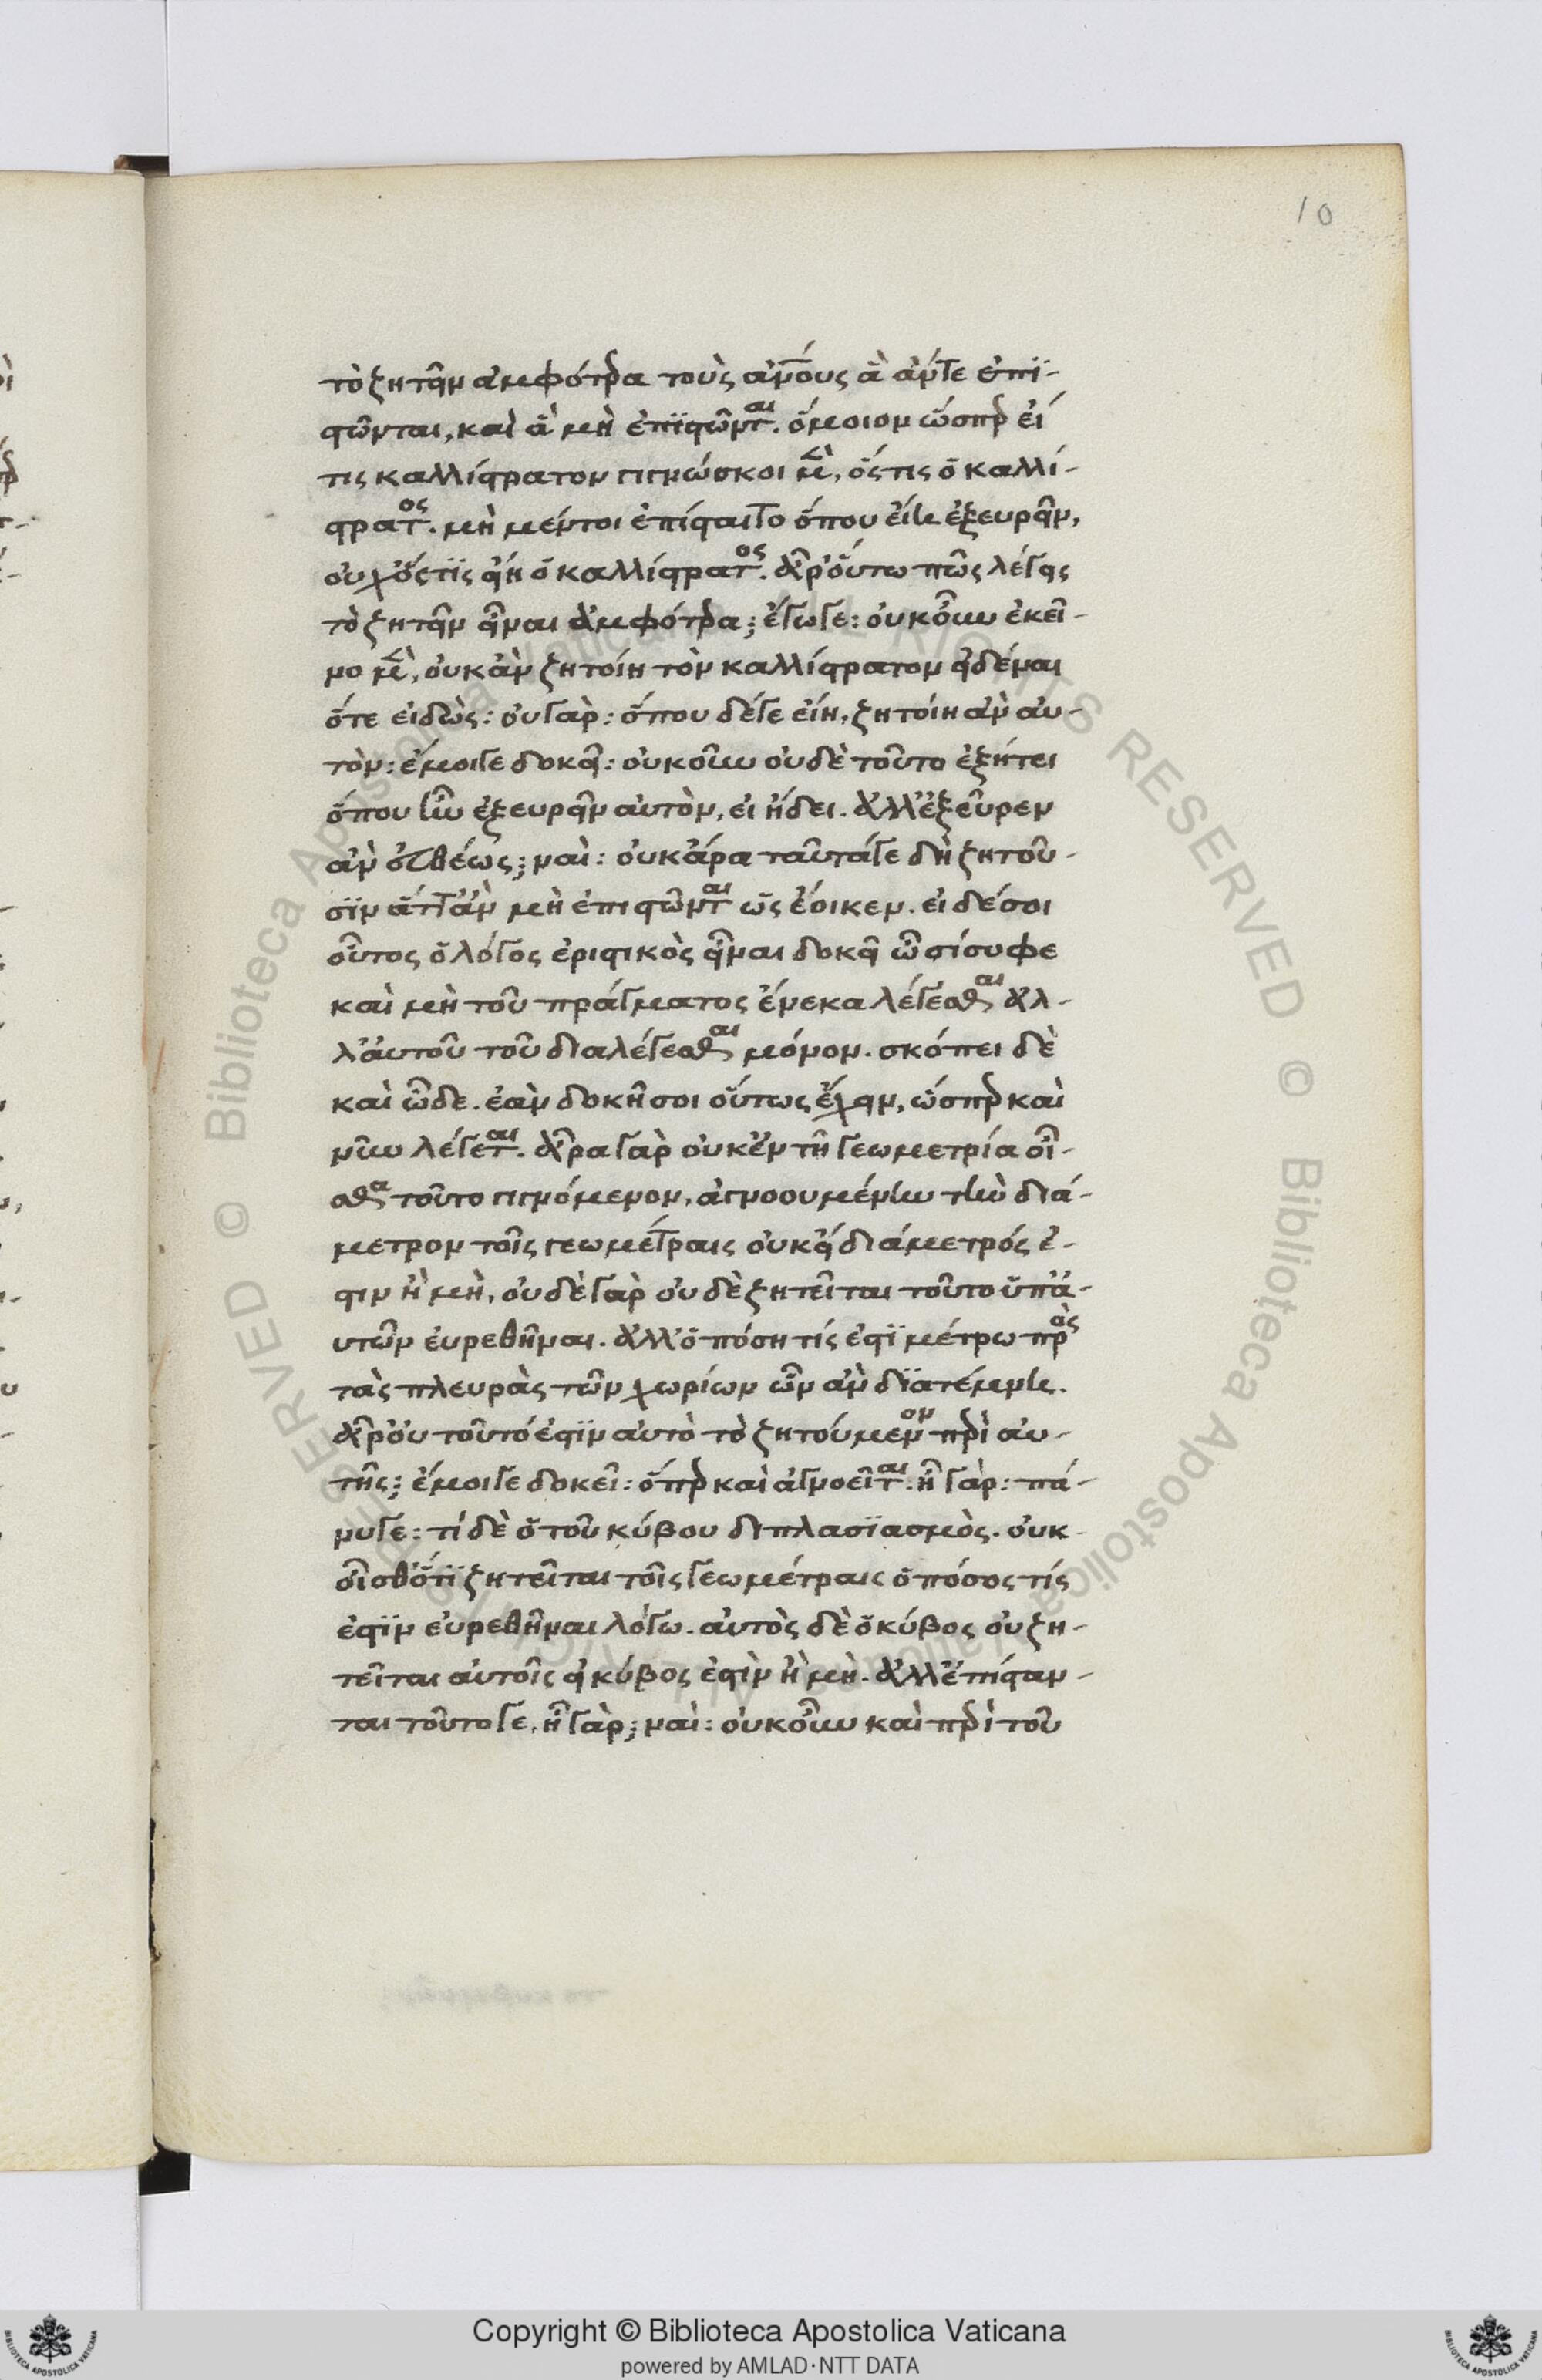 10
τὸ ζητεῖν ἀμφότερα τοὺς ἀν̅ο̅υς ἅ ἄντε ἐπί-
στῶνται, καὶ ἃ μὴ ἐπίστῶνται. ὅμοιον ὥσπερ εἴ
τις καλλίστρατον γιγνώσκοι μὲν, ὅστις ὁ καλλί-
στρατος. μὴ μέντοι ἐπίσταιτο ὅπου εἴη ἐξευρεῖν,
οὐχ ὅστις εἴη ὁ καλλίστρατος. ἆρ' οὕτω πῶς λέγεις
τὸ ζητεῖν εἶναι ἀμφότερα; ἔγωγε: οὐκοῦν ἐκεῖ-
νο μὲν, οὐκ ἂν ζητοίη τὸν καλλίστρατον εἰδέναι
ὅτε εἰδὼς: οὐ γὰρ: ὅπου δέ γε εἴη, ζητοίη ἂν αὐ-
τὸν: ἔμοιγε δοκεῖ: οὐκοῦν οὐδὲ τοῦτο ἐξήτει
ὅπου ἦν ἐξευρεῖν αὐτὸν, εἰ ᾔδει. ἀλλ' ἐξεῦρεν
ἂν εὐθέως; ναὶ: οὐκ ἄρα ταῦτά γε δὴ ζητοῦ-
σϊν ἅττ' ἂν μὴ ἐπιστῶνται ὡς ἔοικεν. εἰ δέ σοι
οὗτος ὁ λόγος ἐριστικὸς εἶναι δοκεῖ ὦ σίσυφε
καὶ μὴ τοῦ πράγματος ἕνεκα λέγεσθαι ἀλ-
λ' αὐτοῦ τοῦ διαλέγεσθαι μόνον. σκόπει δὲ
καὶ ὧδε. ἐὰν δοκῇ σοι οὕτως ἔχειν, ὥσπερ καὶ
νῦν λέγεται. ἆρα γὰρ οὐκ ἐν τῆ γεωμετρία οἶ-
σθα τοῦτο γιγνόμενον, ἀγνοουμένην τὴν διά-
μετρον τοῖς γεωμέτραις οὐκ εἰ διάμετρός ἐ-
στιν ἢ μὴ, οὐδὲ γὰρ οὐδὲ ζητεῖται τοῦτο ὑπ' ἀ-
υτῶν εὑρεθῆναι. ἀλλ' ὁπόση τίς ἐστϊ μέτρω πρὸς
τὰς πλευρὰς τῶν χωρίων ὧν ἂν διατέμενη.
ἆρ' οὐ τοῦτό ἐστϊν αὐτὸ τὸ ζητούμενον περὶ αὐ-
τῆς; ἔμοιγε δοκεῖ: ὅπερ καὶ ἀγνοεῖται. ἦ γὰρ: πά-
νυ γε: τί δὲ ὁ τοῦ κύβου διπλασϊασμὸς. οὐκ
οἶσθ' ὅτϊ ζητεῖται τοῖς γεωμέτραις ὁπόσος τίς
ἐστϊν εὑρεθῆναι λόγω. αὐτὸς δὲ ὁ κύβος οὐ ζη-
τεῖται αὐτοῖς εἰ κύβος ἐστὶν ἢ μὴ. ἀλλ' ἐπίσταν-
ται τοῦτο γε, ἦ γὰρ; ναὶ: οὐκοῦν καὶ περὶ τοῦ
Copyright © Biblioteca Apostolica Vaticana
powered by AMLAD·NTT DATA